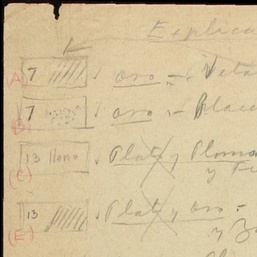 Explica
A 7 oro - Veta
B 7 oro - Place
(C) 13 llono Plata y Plomo
y Fe
(E) 13 Plata y oro -
y